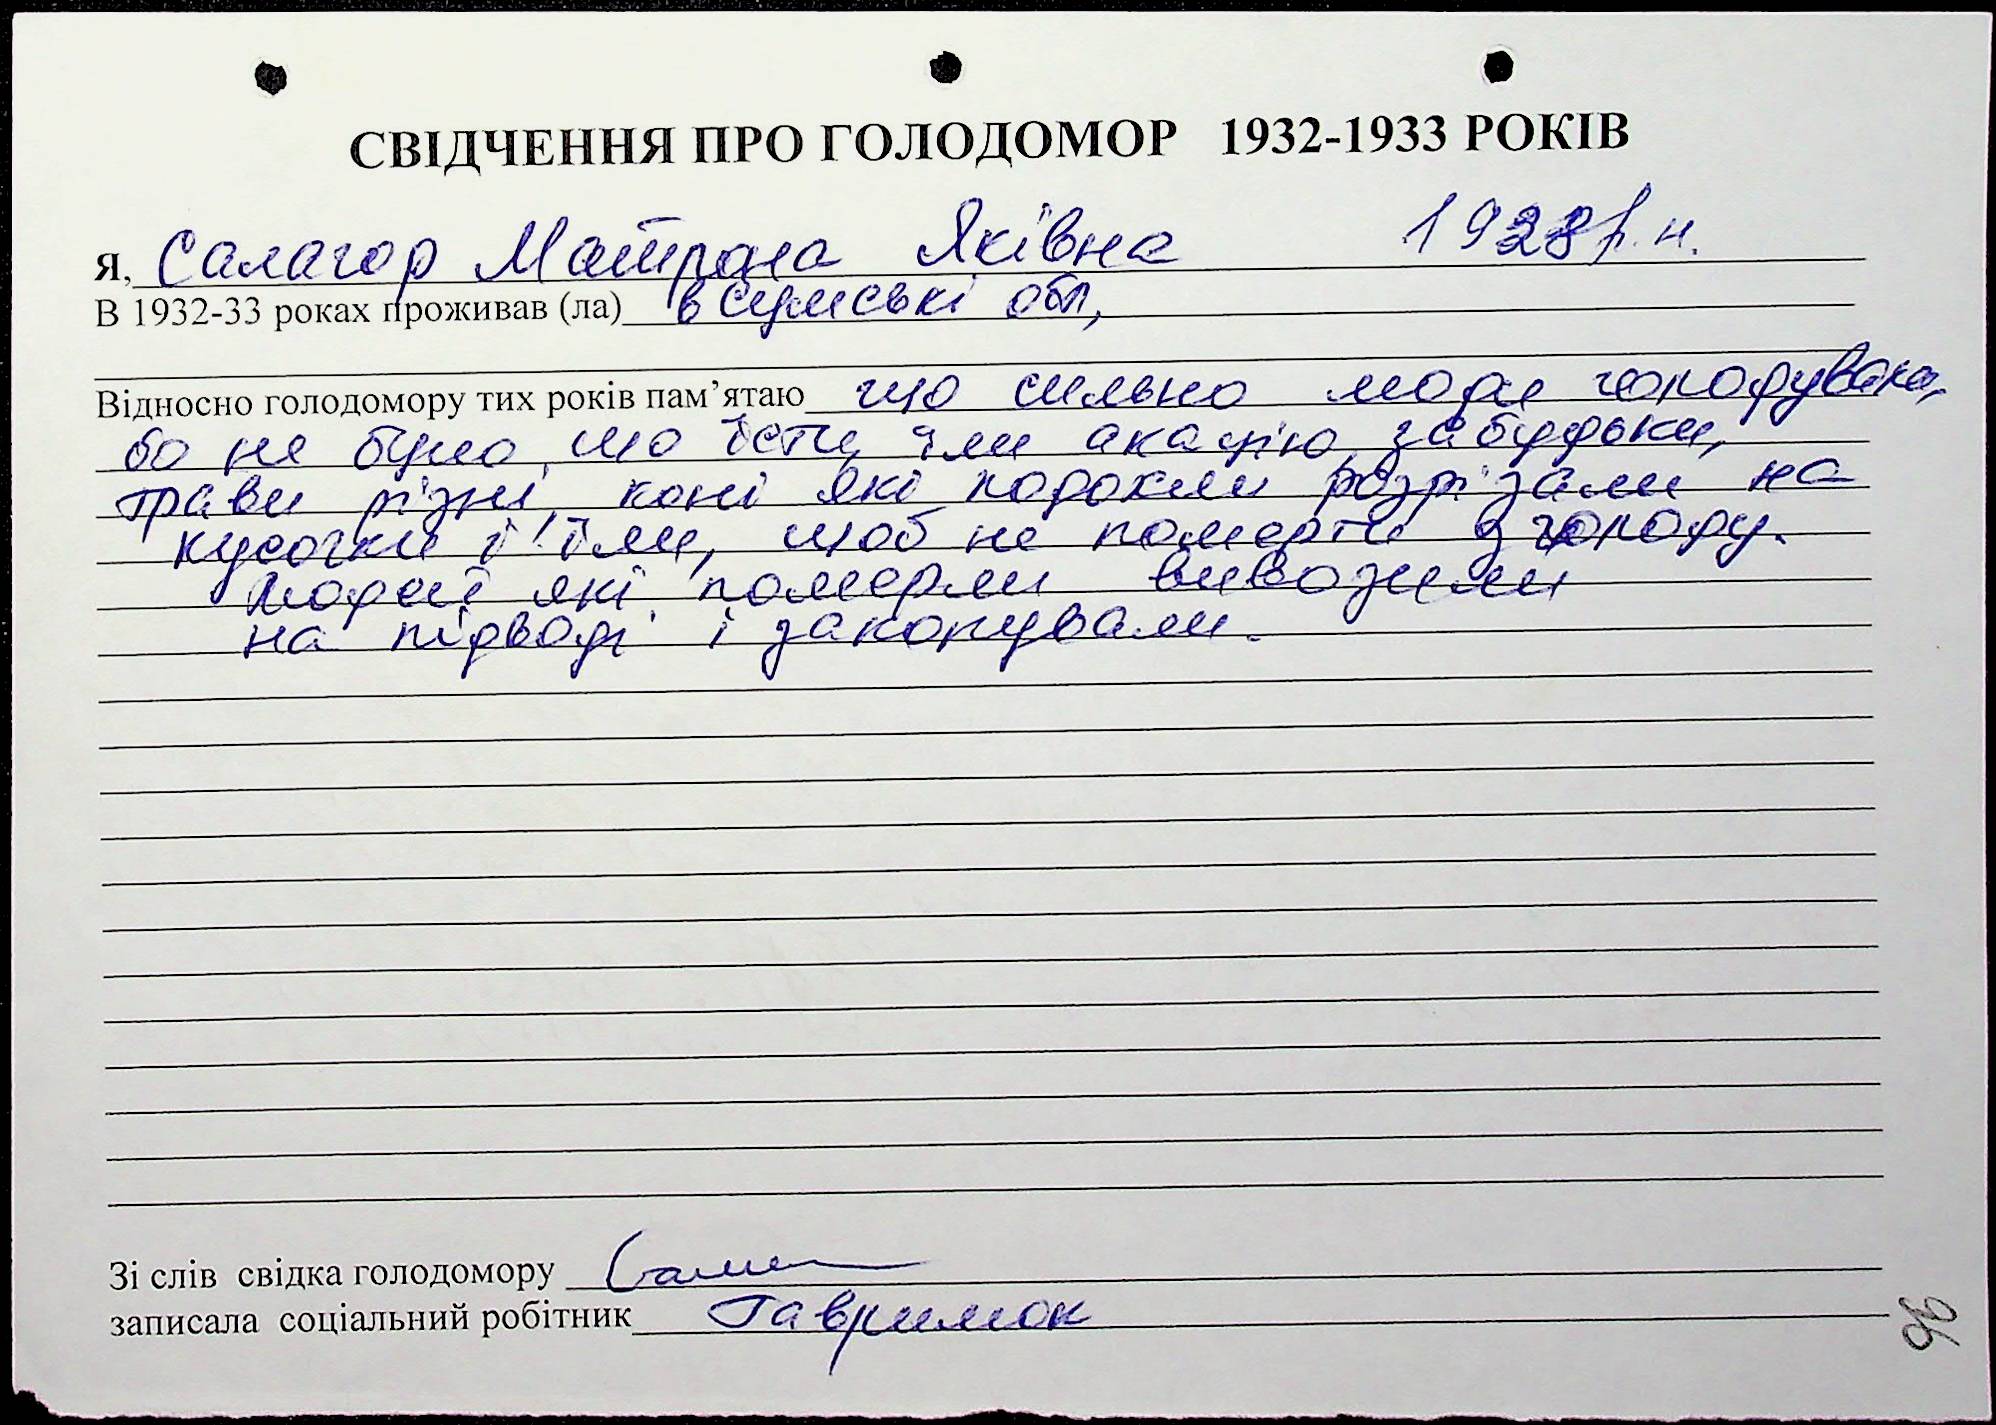 СВІДЧЕННЯ ПРО ГОЛОДОМОР 1932-1933 РОКІВ
Я, Салагор Матрона Яківна 1928 р.н.
В 1932-33 роках проживав (ла) в Сумські обл,
Відносно голодомору тих років пам’ятаю що сильно люди голодували,
бо не було, що їсти, їли акацію,
трави різні, коні які подохли розрізали на
кусочки й їли, щоб не померти з голоду.
Людей які померли вивозили
на підводі і закопували.
Зі слів свідка голодомору
записала соціальний робітник Гаврилюк
90